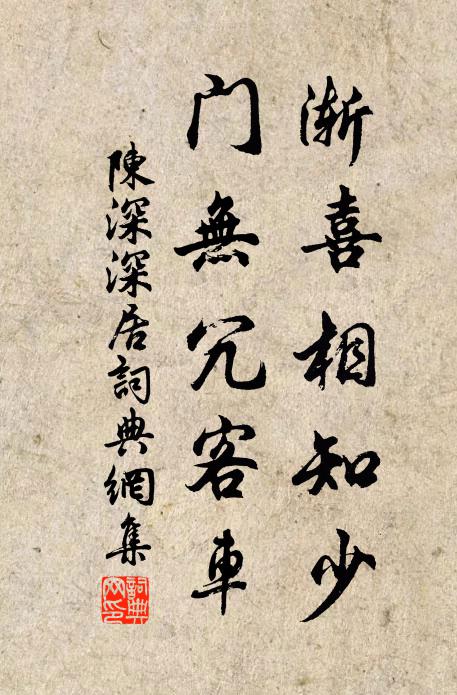 漸喜相知少
門無冗客車
陳深深居詞典網集
詞典
网印